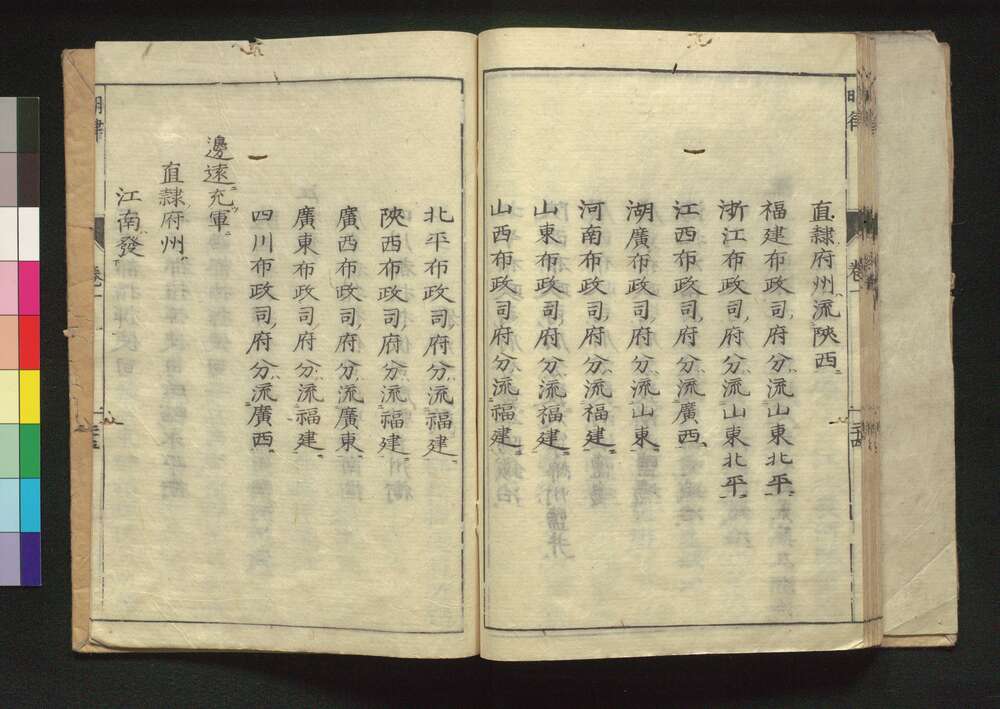 明律
卷一
二十四
直隷府州流陝西
福建布政司府分流山東北平
浙江布政司府分流山東北平
江西布政司府分流廣西
湖廣布政司府分流山東
河南布政司府分流福建
山東布政司府分流福建
山西布政司府分流福建
北平布政司府分流福建
陝西布政司府分流福建
廣西布政司府分流廣東
廣東布政司府分流福建
四川布政司府分流廣西
邊遠充軍
直隷府州
江南發
明律
卷一